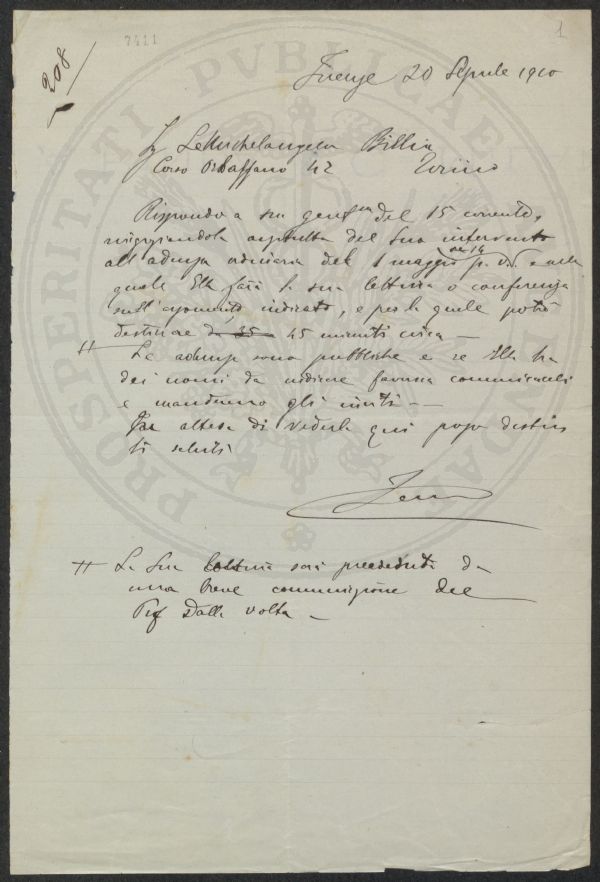 208
7411
1
Firenze 20 Aprile 1910
L. Michelangelo Billia
Corso Orbassano 42 Torino
Rispondo a sua gent.ma del 15 corrente,
del suo intervento
ore 14
all'adunza del 1 maggio p. v. e nella
quale Ella farà la sua lettura o conferenza
sull'argomento indicato, e per la quale potrà
destinare da 35 45 minuti circa —
# Le adunze sono pubbliche e se Ella ha
dei nomi da indicare favorisca comunicarceli
e manderemo gli inviti —
In attesa di vederla qui porgo distin
ti saluti
# La sua lettura sarà preceduta da
una breve comunicazione del
Prof Dalla Volta —
PROSPERITATI PVBLICAE AVGENDAE